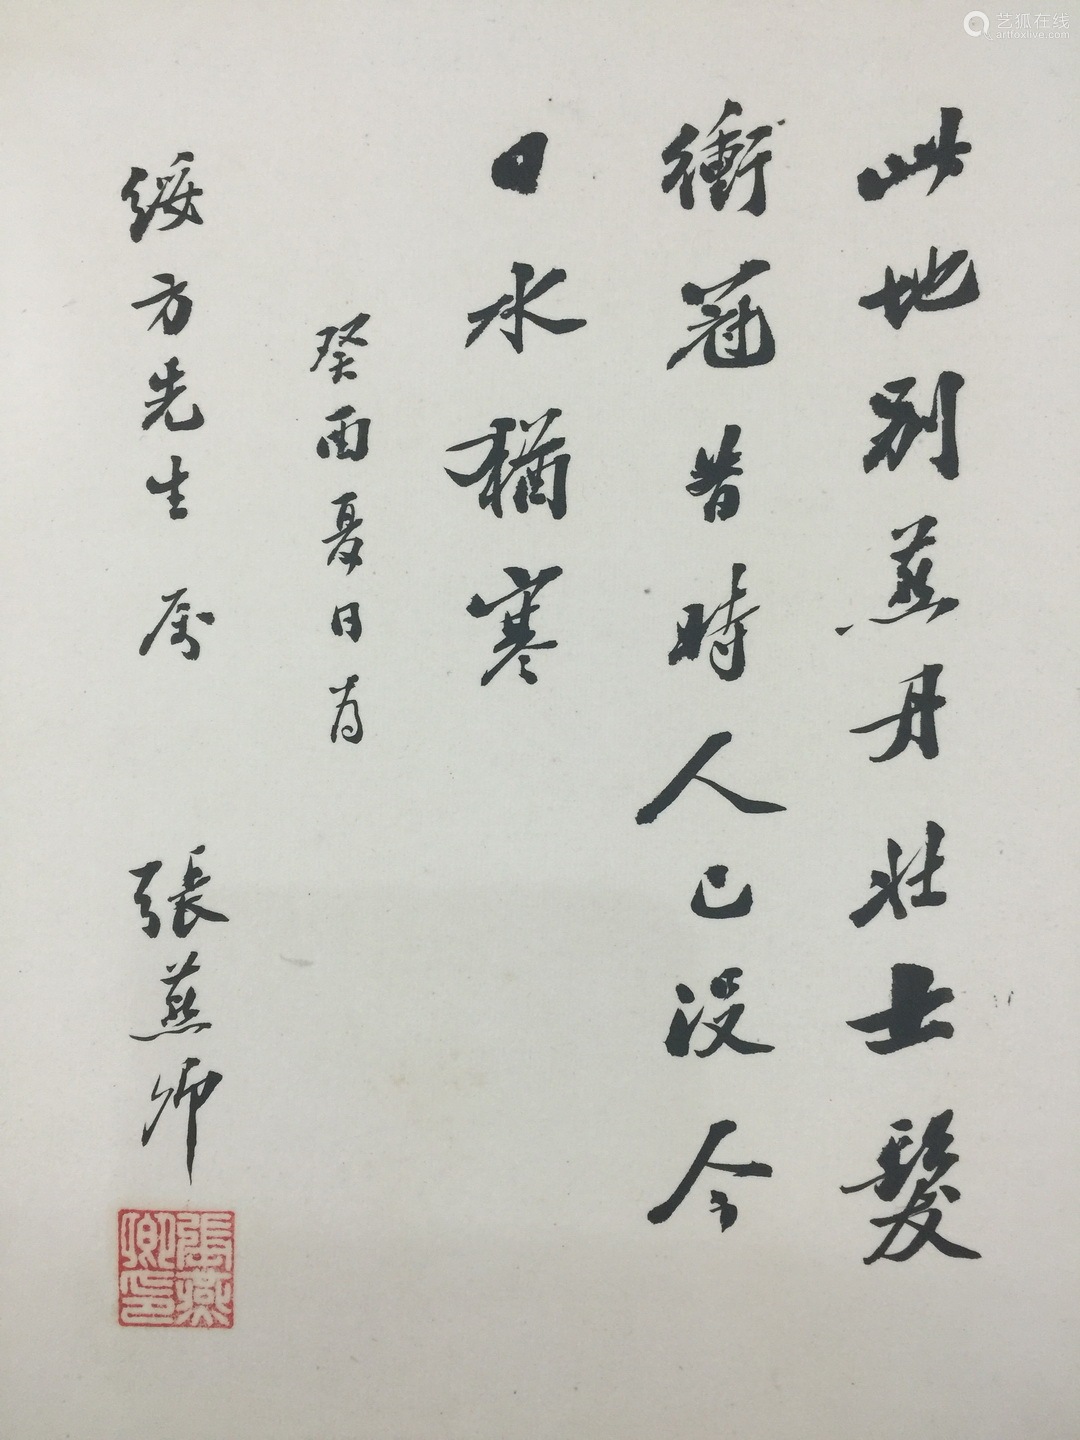 此地別燕丹壯士髮
衝冠昔時人已沒今
日水猶寒
癸酉夏日為
綏方先生属
張燕卿
張燕卿印
艺狐在线
artfoxlive.com